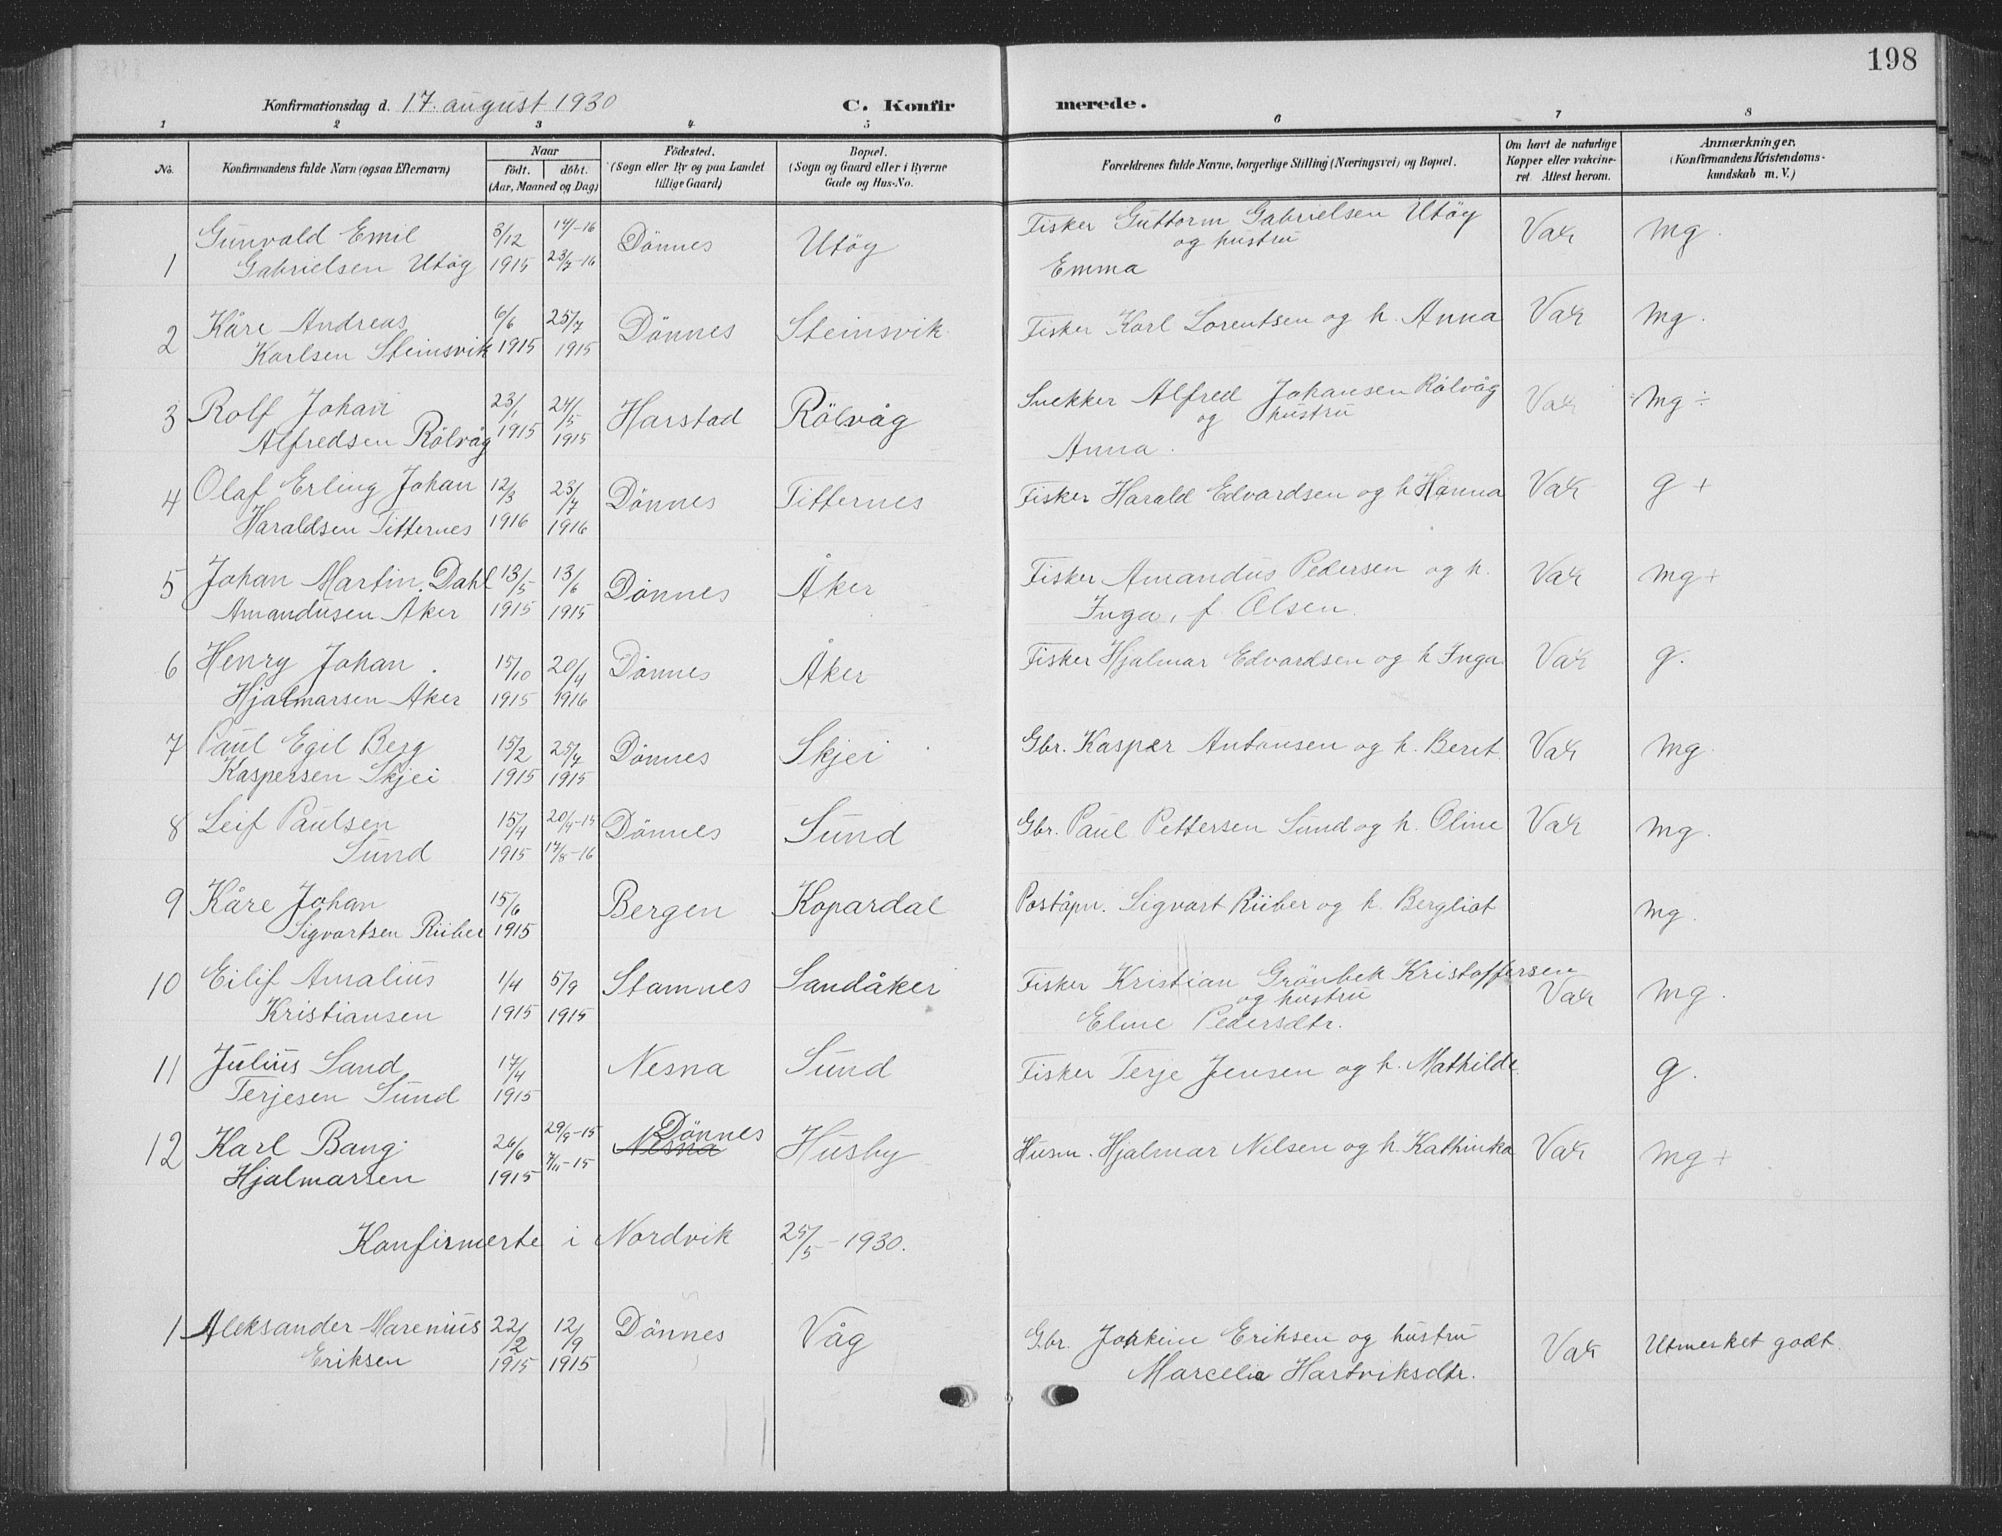 198
Konfirmationsdag d. 17. august 1930 C. Konfirmerede.
1 2 3 4 5 6 7 8
No. Konfirmandens fulde Navn (ogsaa Efternavn) Naar født. døbt. (Aar, Maaned og Dag) Fødested. (Sogn eller By og paa Landet tillige Gaard) Bopæl. (Sogn og Gaard eller i Byerne Gade og Hus-No. Forældrenes fulde Navne, borgerlige Stilling (Næringsvei) og Bopæl. Om havt de naturlige Kopper eller vakcineret Attest herom. Anmærkninger, (Konfirmandens Kristendomskundskab m. V.)
1 Gunvald Emil Gabrielsen Utöy 3/12 1915 23/7-16 Dönnes Utöy Fisker Guttorm Gabrielsen Utöy og hustru Emma Vak mg.
2 Kåre Andreas Karlsen Steinsvik 6/6 1915 25/7 1915 Dönnes Steinsvik Fisker Karl Lorentsen og h. Anna Vak mg.
3 Rolf Johan Alfredsen Rölvåg 23/1 1915 24/5 1915 Harstad Rölvåg Snekker Alfred Johansen Rölvåg og hustru Anna. Vak mg ÷
4 Olaf Erling Johan Haraldsen Titternes 12/3 1916 23/7 1916 Dönnes Titternes Fisker Harald Edvardsen og h Hanna Vak g +
5 Johan Martin Dahl Amandusen Åker 13/5 1915 13/6 1915 Dönnes Åker Fisker Amandus Pedersen og h. Inga, f. Olsen. Vak mg +
6 Henry Johan Hjalmarsen Åker 15/10 1915 20/4 1916 Dönnes Åker Fisker Hjalmar Edvardsen og h Inga Vak g.
7 Paul Egil Berg Kaspersen Skjei 15/2 1915 25/4 1915 Dönnes Skjei Gbr. Kasper Antonsen og h. Beret Vak mg.
8 Leif Paulsen Sund 15/4 1915 Dönnes Sund Gbr. Paul Pettersen Sund og h. Oline Vak mg.
9 Kåre Johan Sigvartsen Riiber 15/6 1915 Bergen Kopardal Poståpn. Sigvart Riiber og h. Bergliot mg.
10 Eilif Amalius Kristiansen 1/4 1915 5/9 1915 Stamnes Sandåker Fisker Kristian Grönbek Kristoffersen og hustru Eline Pedersdtr. Vak mg.
11 Julius Sand Terjesen Sund 17/4 1915 Nesna Sund Fisker Terje Jensen og h. Mathilde g.
12 Karl Bang Hjalmarsen 26/6 1915 29/9-15 7/11-15 Dönnes Nesna Husby Husm. Hjalmar Nilsen og h. Kathinka Vak mg +
Konfirmerte i Nordvik 25/5-1930.
1 Aleksander Marenius Eriksen 22/2 1915 12/9 1915 Dönnes Våg Gbr. Eriksen og hustru Marcelie Hartviksdtr. Vak Utmerket godt.